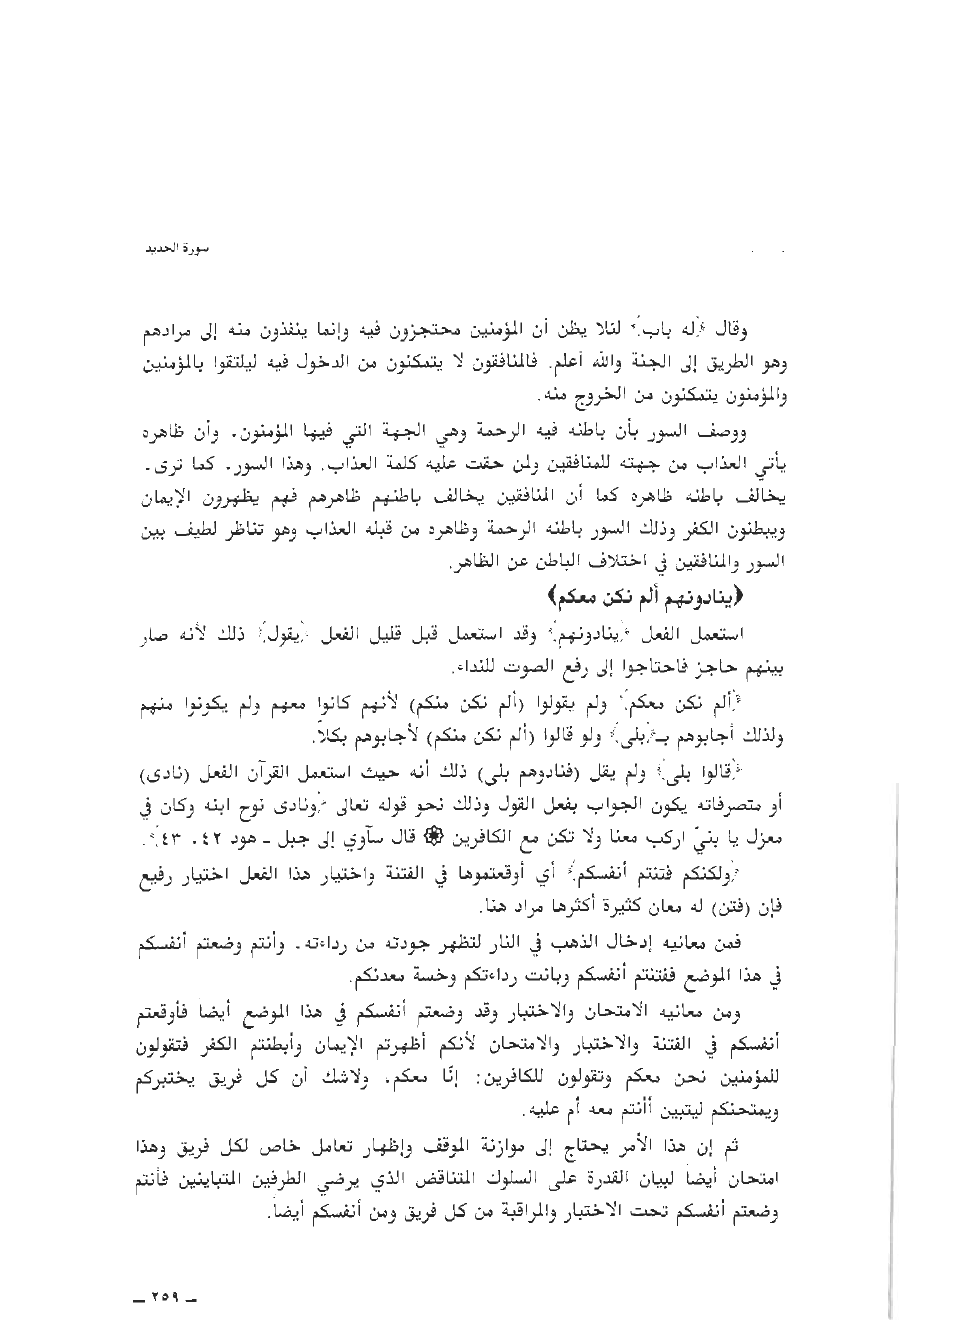 سورة الحديد
وقال ﴿له باب﴾ لئلا يظن أن المؤمنين محتجزون فيه وإنما ينفذون منه إلى مرادهم
وهو الطريق إلى الجنة والله أعلم. فالمنافقون لا يتمكنون من الدخول فيه ليلتقوا بالمؤمنين
والمؤمنون يتمكنون من الخروج منه.
ووصف السور بأن باطنه فيه الرحمة وهي الجهة التي فيها المؤمنون. وأن ظاهره
يأتي العذاب من جهته للمنافقين ولمن حقت عليه كلمة العذاب. وهذا السور. كما ترى.
يخالف باطنه ظاهره كما أن المنافقين يخالف باطنهم ظاهرهم فهم يظهرون الإيمان
ويبطنون الكفر وذلك السور باطنه الرحمة وظاهره من قبله العذاب وهو تناظر لطيف بين
السور والمنافقين في اختلاف الباطن عن الظاهر.
﴿ينادونهم ألم نكن معكم﴾
استعمل الفعل ﴿ينادونهم﴾ وقد استعمل قبل قليل الفعل ﴿يقول﴾ ذلك لأنه صار
بينهم حاجز فاحتاجوا إلى رفع الصوت للنداء.
﴿ألم نكن معكم﴾ ولم يقولوا (ألم نكن منكم) لأنهم كانوا معهم ولم يكونوا منهم
ولذلك أجابوهم بـ﴿بلى﴾ ولو قالوا (ألم نكن منكم) لأجابوهم بكلاّ.
﴿قالوا بلى﴾ ولم يقل (فنادوهم بلى) ذلك أنه حيث استعمل القرآن الفعل (نادى)
أو متصرفاته يكون الجواب بفعل القول وذلك نحو قوله تعالى ﴿ونادى نوح ابنه وكان في
معزل يا بنيّ اركب معنا ولا تكن مع الكافرين ۞ قال سآوي إلى جبل ـ هود ٤٢، ٤٣﴾.
﴿ولكنكم فتنتم أنفسكم﴾ أي أوقعتموها في الفتنة واختيار هذا الفعل اختيار رفيع
فإن (فتن) له معان كثيرة أكثرها مراد هنا.
فمن معانيه إدخال الذهب في النار لتظهر جودته من رداءته. وأنتم وضعتم أنفسكم
في هذا الموضع ففتنتم أنفسكم وبانت رداءتكم وخسة معدنكم.
ومن معانيه الامتحان والاختبار وقد وضعتم أنفسكم في هذا الموضع أيضا فأوقعتم
أنفسكم في الفتنة والاختبار والامتحان لأنكم أظهرتم الإيمان وأبطنتم الكفر فتقولون
للمؤمنين نحن معكم وتقولون للكافرين: إنّا معكم، ولاشك أن كل فريق يختبركم
ويمتحنكم ليتبين أأنتم معه أم عليه.
ثم إن هذا الأمر يحتاج إلى موازنة الموقف وإظهار تعامل خاص لكل فريق وهذا
امتحان أيضاً لبيان القدرة على السلوك المتناقض الذي يرضي الطرفين المتباينين فأنتم
وضعتم أنفسكم تحت الاختبار والمراقبة من كل فريق ومن أنفسكم أيضاً.
ـ ٢٥٩ ـ